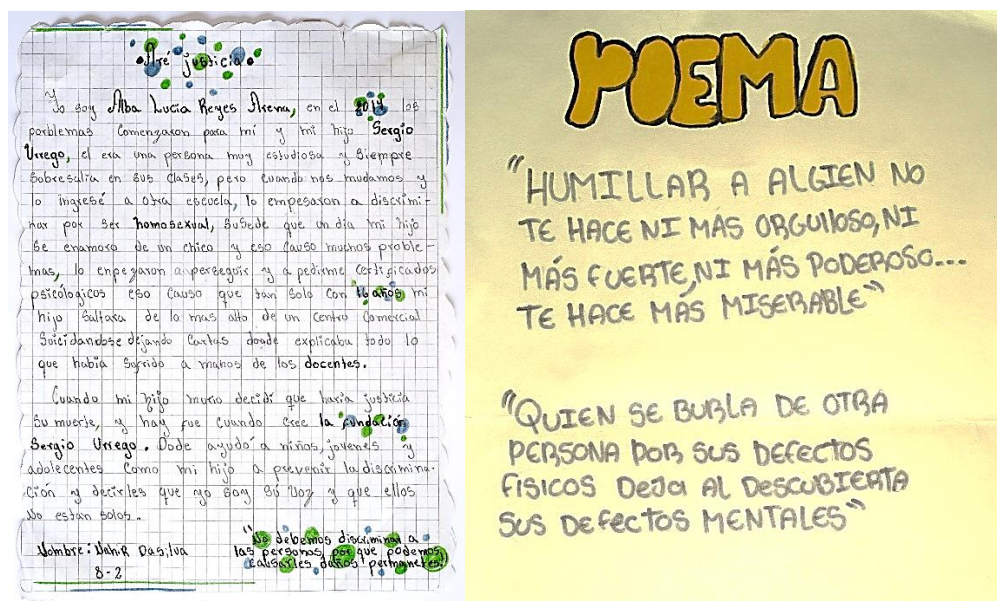 Aré justicia
Yo soy Alba Lucia Reyes Arena, en el 2014 los
porblemas comenzaron para mí y mi hijo Sergio
Urrego, el era una persona muy estudiosa y siempre
sobresalia en sus clases, pero cuando nos mudamos y
lo ingresé a otra escuela, lo empesaron a discrimi-
nar por ser homosexual, susede que un dia mi hijo
se enamoro de un chico y eso causo muchos proble-
mas, lo enpezaron a perseguir y a pedirme certificados
psicólogicos eso causo que tan solo con 16 años mi
hijo saltara de lo mas alto de un centro comercial
suicidandose dejando cartas donde explicaba todo lo
que habia sufrido a manos de los docentes.
Cuando mi hijo murio decidí que haria justicia
su muerte, y hay fue cuando cree la fundación
Sergio Urrego. Dode ayudó a niños, jovenes y
adolecentes como mi hijo a prevenir la discrimina-
ción y decirles que yo soy sú voz y que ellos
No estan solos..
Nombre: Nahir Dasilva
8-2
"No debemos discriminar a
las personas, por que podemos
causarles daños permanetes."
POEMA
"HUMILLAR A ALGIEN NO
TE HACE NI MÁS ORGULLOSO, NI
MÁS FUERTE, NI MÁS PODEROSO...
TE HACE MÁS MISERABLE"
"QUIEN SE BURLA DE OTRA
PERSONA POR SUS DEFECTOS
FISICOS DEJA AL DESCUBIERTA
SUS DEFECTOS MENTALES"